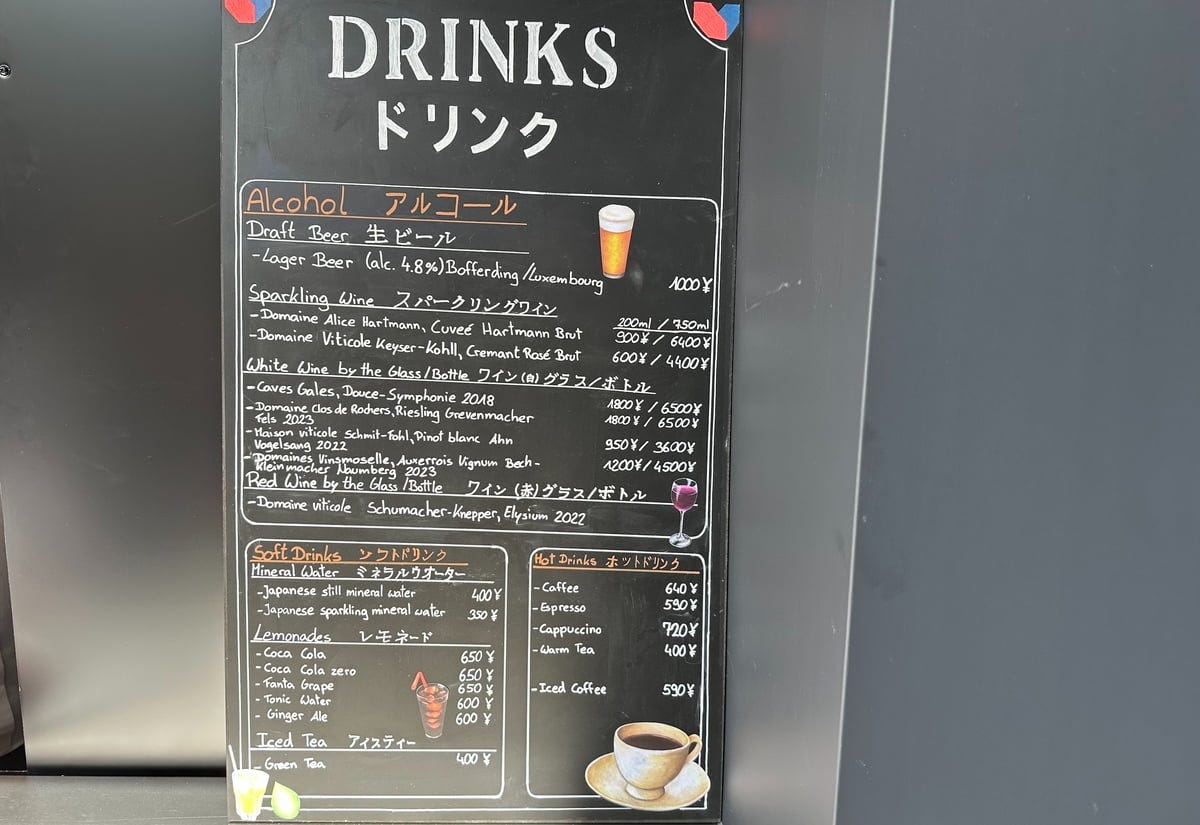 DRINKS
ドリンク
Alcohol アルコール
Draft Beer 生ビール
-Lager Beer (alc. 4.8%) Bofferding/Luxembourg 1000¥
Sparkling Wine スパークリングワイン
200ml / 750ml
-Domaine Alice Hartmann, Cuveé Hartmann Brut 900¥ / 6400¥
-Domaine Viticole Keyser-Kohll, Cremant Rosé Brut 600¥ / 4400¥
White Wine by the Glass/Bottle ワイン(白)グラス/ボトル
-Caves Gales, Douce-Symphonie 2018 1800¥ / 6500¥
-Domaine Clos de Rochers, Riesling Grevenmacher 1800¥ / 6500¥
Fels 2023
-Maison viticole Schmit-Fohl, Pinot blanc Ahn 950¥/ 3600¥
Vogelsang 2022
-Domaines Vinsmoselle, Auxerrois Vignum Bech- 1200¥/4500¥
Kleinmacher Naumberg 2023
Red Wine by the Glass/Bottle ワイン(赤)グラス/ボトル
-Domaine viticole Schumacher-Knepper, Elysium 2022
Soft Drinks ソフトドリンク
Mineral Water ミネラルウオーター
-Japanese still mineral water 400¥
-Japanese sparkling mineral water 350¥
Lemonades レモネード
-Coca Cola 650¥
-Coca Cola zero 650¥
-Fanta Grape 650¥
-Tonic Water 600¥
-Ginger Ale 600¥
Iced Tea アイスティー
-Green Tea 400¥
Hot Drinks ホットドリンク
-Coffee 640¥
-Espresso 590¥
-Cappuccino 720¥
-Warm Tea 400¥
-Iced Coffee 590¥